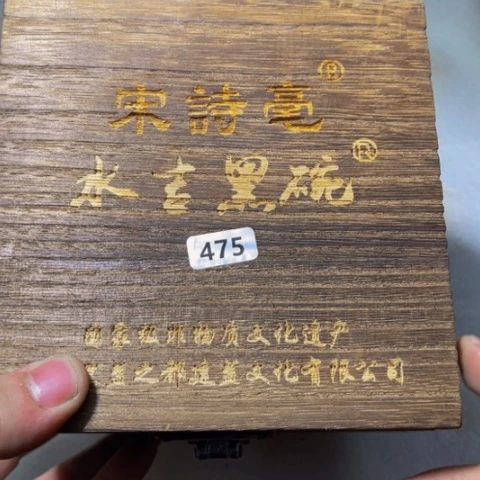 宋詩亳®
水吉黑碗®
475
国家级非物质文化遗产
盏之都建盏文化有限公司